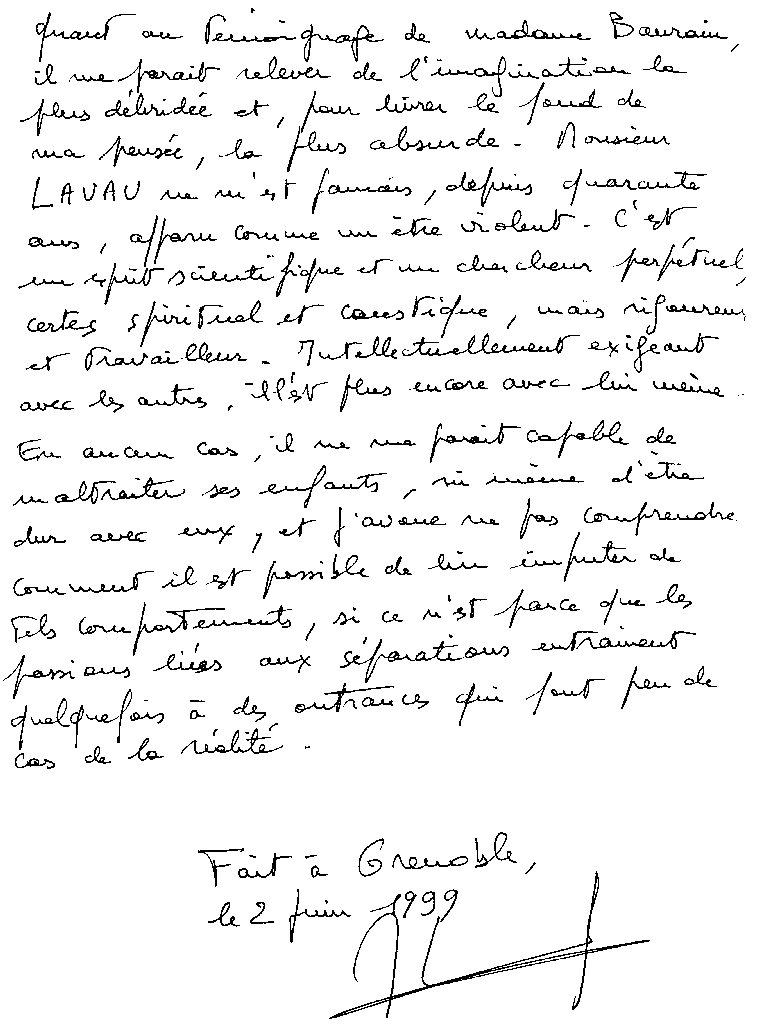 quant au témoignage de madame Baurain,
il me parait relever de l'imagination la
plus débridée et, pour livrer le fond de
ma pensée, la plus absurde. Monsieur
LAVAU ne m'est jamais, depuis quarante
ans, apparu comme un être violent. C'est
un esprit scientifique et un chercheur perpétuel,
certes spirituel et caustique, mais rigoureux
et travailleur. Intellectuellement exigeant
avec les autres, il l'est plus encore avec lui même.
En aucun cas, il ne me parait capable de
maltraiter ses enfants, ni même d'être
dur avec eux, et j'avoue ne pas comprendre
comment il est possible de lui imputer de
tels comportements, si ce n'est parce que les
passions liées aux séparations entrainent
quelquefois à des outrances qui font peu de
cas de la réalité.
Fait à Grenoble,
le 2 juin 1999